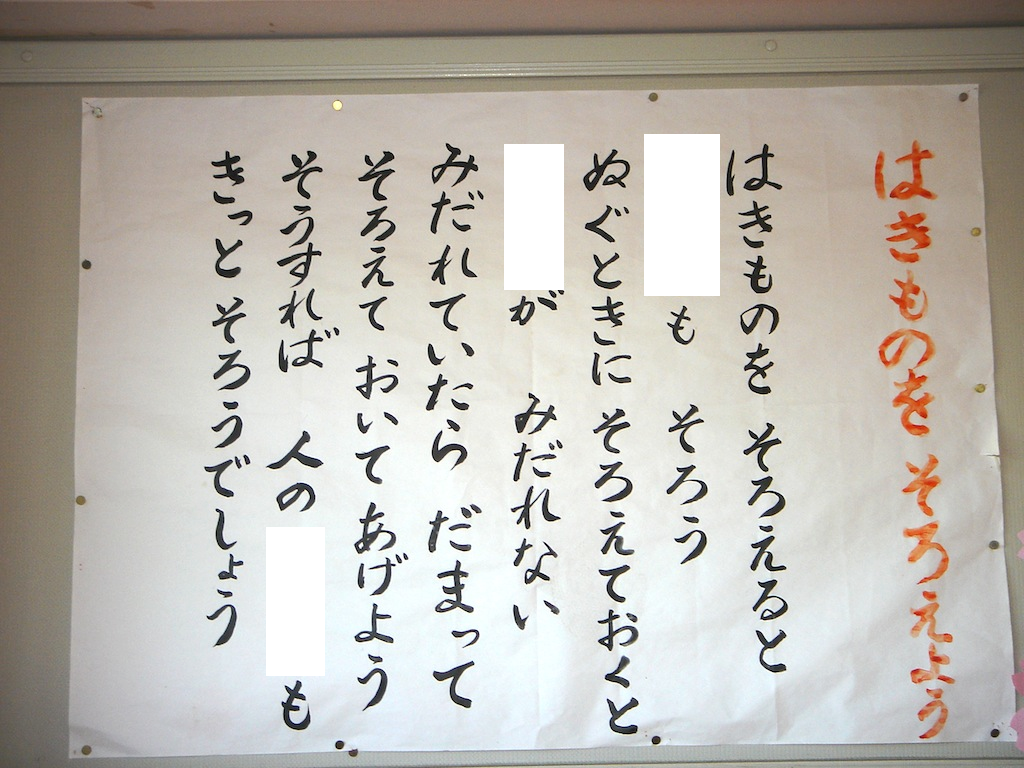 はきものを そろえよう
はきものを そろえると
も そろう
ぬぐときに そろえておくと
が みだれない
みだれていたら だまって
そろえて おいて あげよう
そうすれば 人の も
きっと そろうでしょう